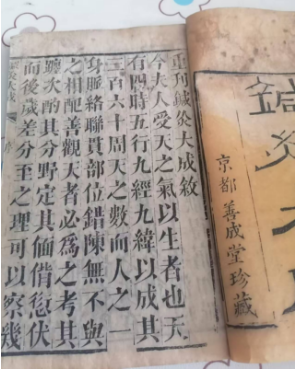 鍼灸大
京都善成堂珍藏
重刊鍼灸大成敘
今夫人受天之氣以生者也天
有四時五行九經九緯以成其
三百六十周天之數而人之一
身脈絡聯貫部位錯陳無不與
之相配善觀天者必爲之考其
躔次酌其分野定其借愆伏
而後歲差分至之理可以察幾
灸大成